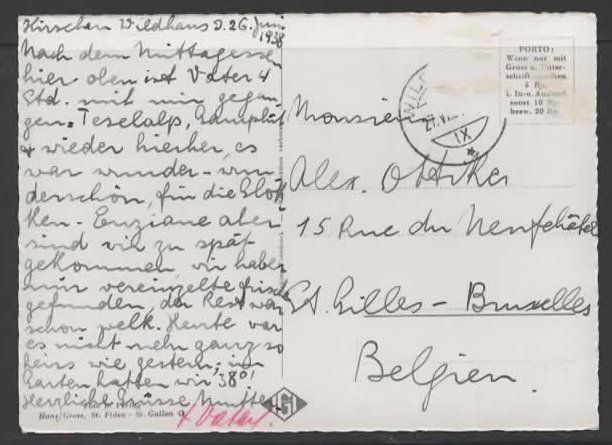 Hirschen Wildhaus d. 26. Juni
1938
Nach dem Mittagessen
hier oben ist Vater 4
Std. mit mir gegan-
gen: Teselalp, Gamplüt
& wieder hierher, es
war wunder-wun-
derschön, für die Glok-
ken-Enziane aber
sind wir zu spät
gekommen, wir haben
nur vereinzelte frisch
gefunden, der Rest war
schon welk. Heute war
es nicht mehr ganz so
heiss wie gestern; im
Garten hatten wir 38°!
Herzliche Grüsse Mutter
+ Vater
Hans Gross, St. Fiden - St. Gallen O
PORTO:
Wenn nur mit
Gruss u. Unter-
schrift
5 Rp.
i. In-u. Ausland
sonst 10 Rp.
bezw. 20 Rp.
27. VI.
IX
Monsieur
Alex. Ottiker
15 Rue du Neufchâtel
St. Gilles - Bruxelles
Belgien.